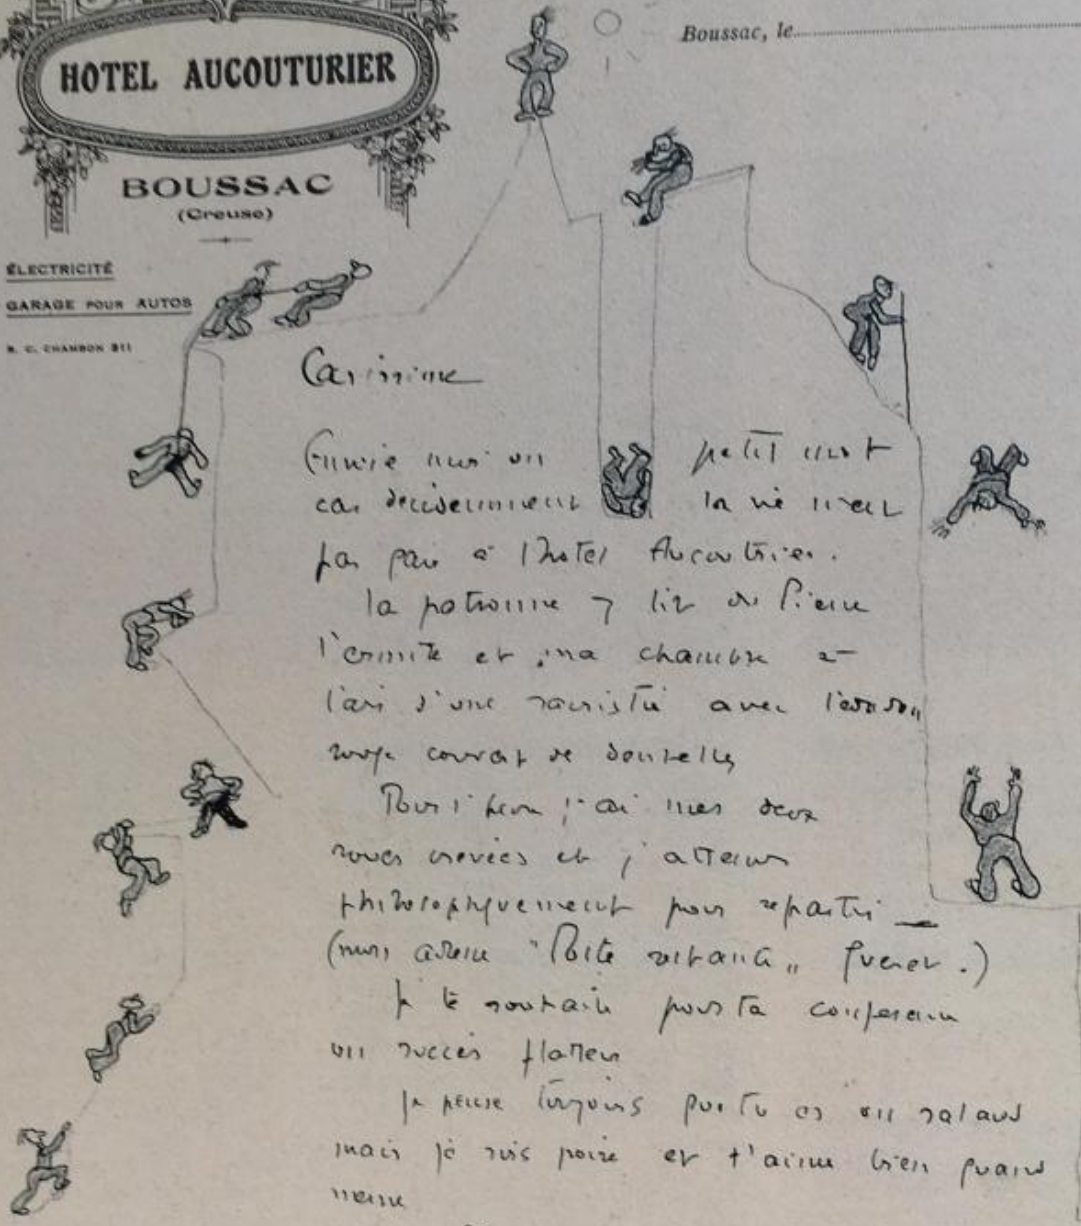 HOTEL AUCOUTURIER
Boussac, le
BOUSSAC
(Creuse)
ÉLECTRICITÉ
GARAGE POUR AUTOS
R. C. CHAMBON 211
Carissime
Envoie moi un petit mot
car décidemment la vie n'est
pas gaie à l'hotel Aucouturier.
la patronne y lit du Pierre
l'ermite et ma chambre a
l'air d'une sacristie avec l'édredon
rouge couvert de dentelles
Pour l'heure j'ai mes deux
roues crevées et j'attends
philosophiquement pour repartir
(mon adresse "Poste restante" Guéret.)
Je te souhaite pour ta conférence
un succès flatteur
Je pense toujours que tu es un salaud
mais je suis poire et t'aime bien quand
meme